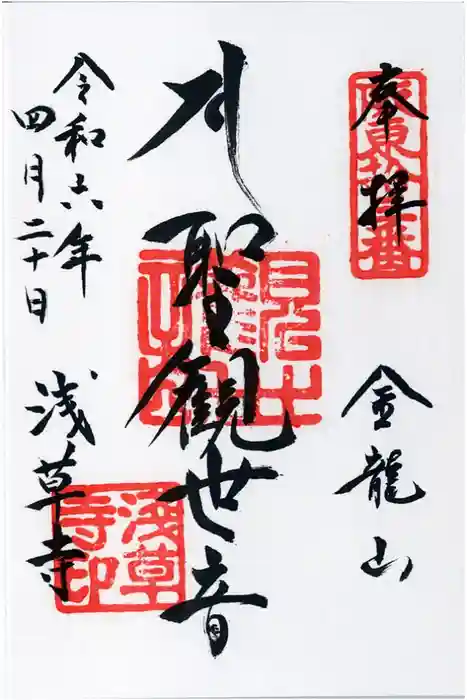 奉拝
金龍山
聖観世音
令和六年
四月二十日
浅草寺
浅草
寺印